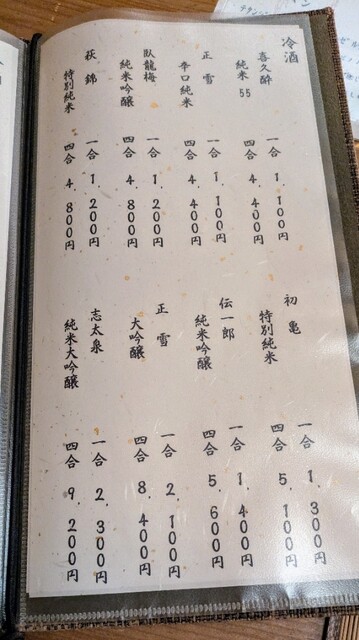 冷酒
喜久酔
純米 55
一合 1.100円
四合 4.400円
正雪
辛口純米
一合 1.100円
四合 4.400円
臥龍梅
純米吟醸
一合 1.200円
四合 4.800円
萩錦
特別純米
一合 1.200円
四合 4.800円
初亀
特別純米
一合 1.300円
四合 5.100円
伝一郎
純米吟醸
一合 1.400円
四合 5.600円
正雪
大吟醸
一合 2.100円
四合 8.400円
志太泉
純米大吟醸
一合 2.300円
四合 9.200円